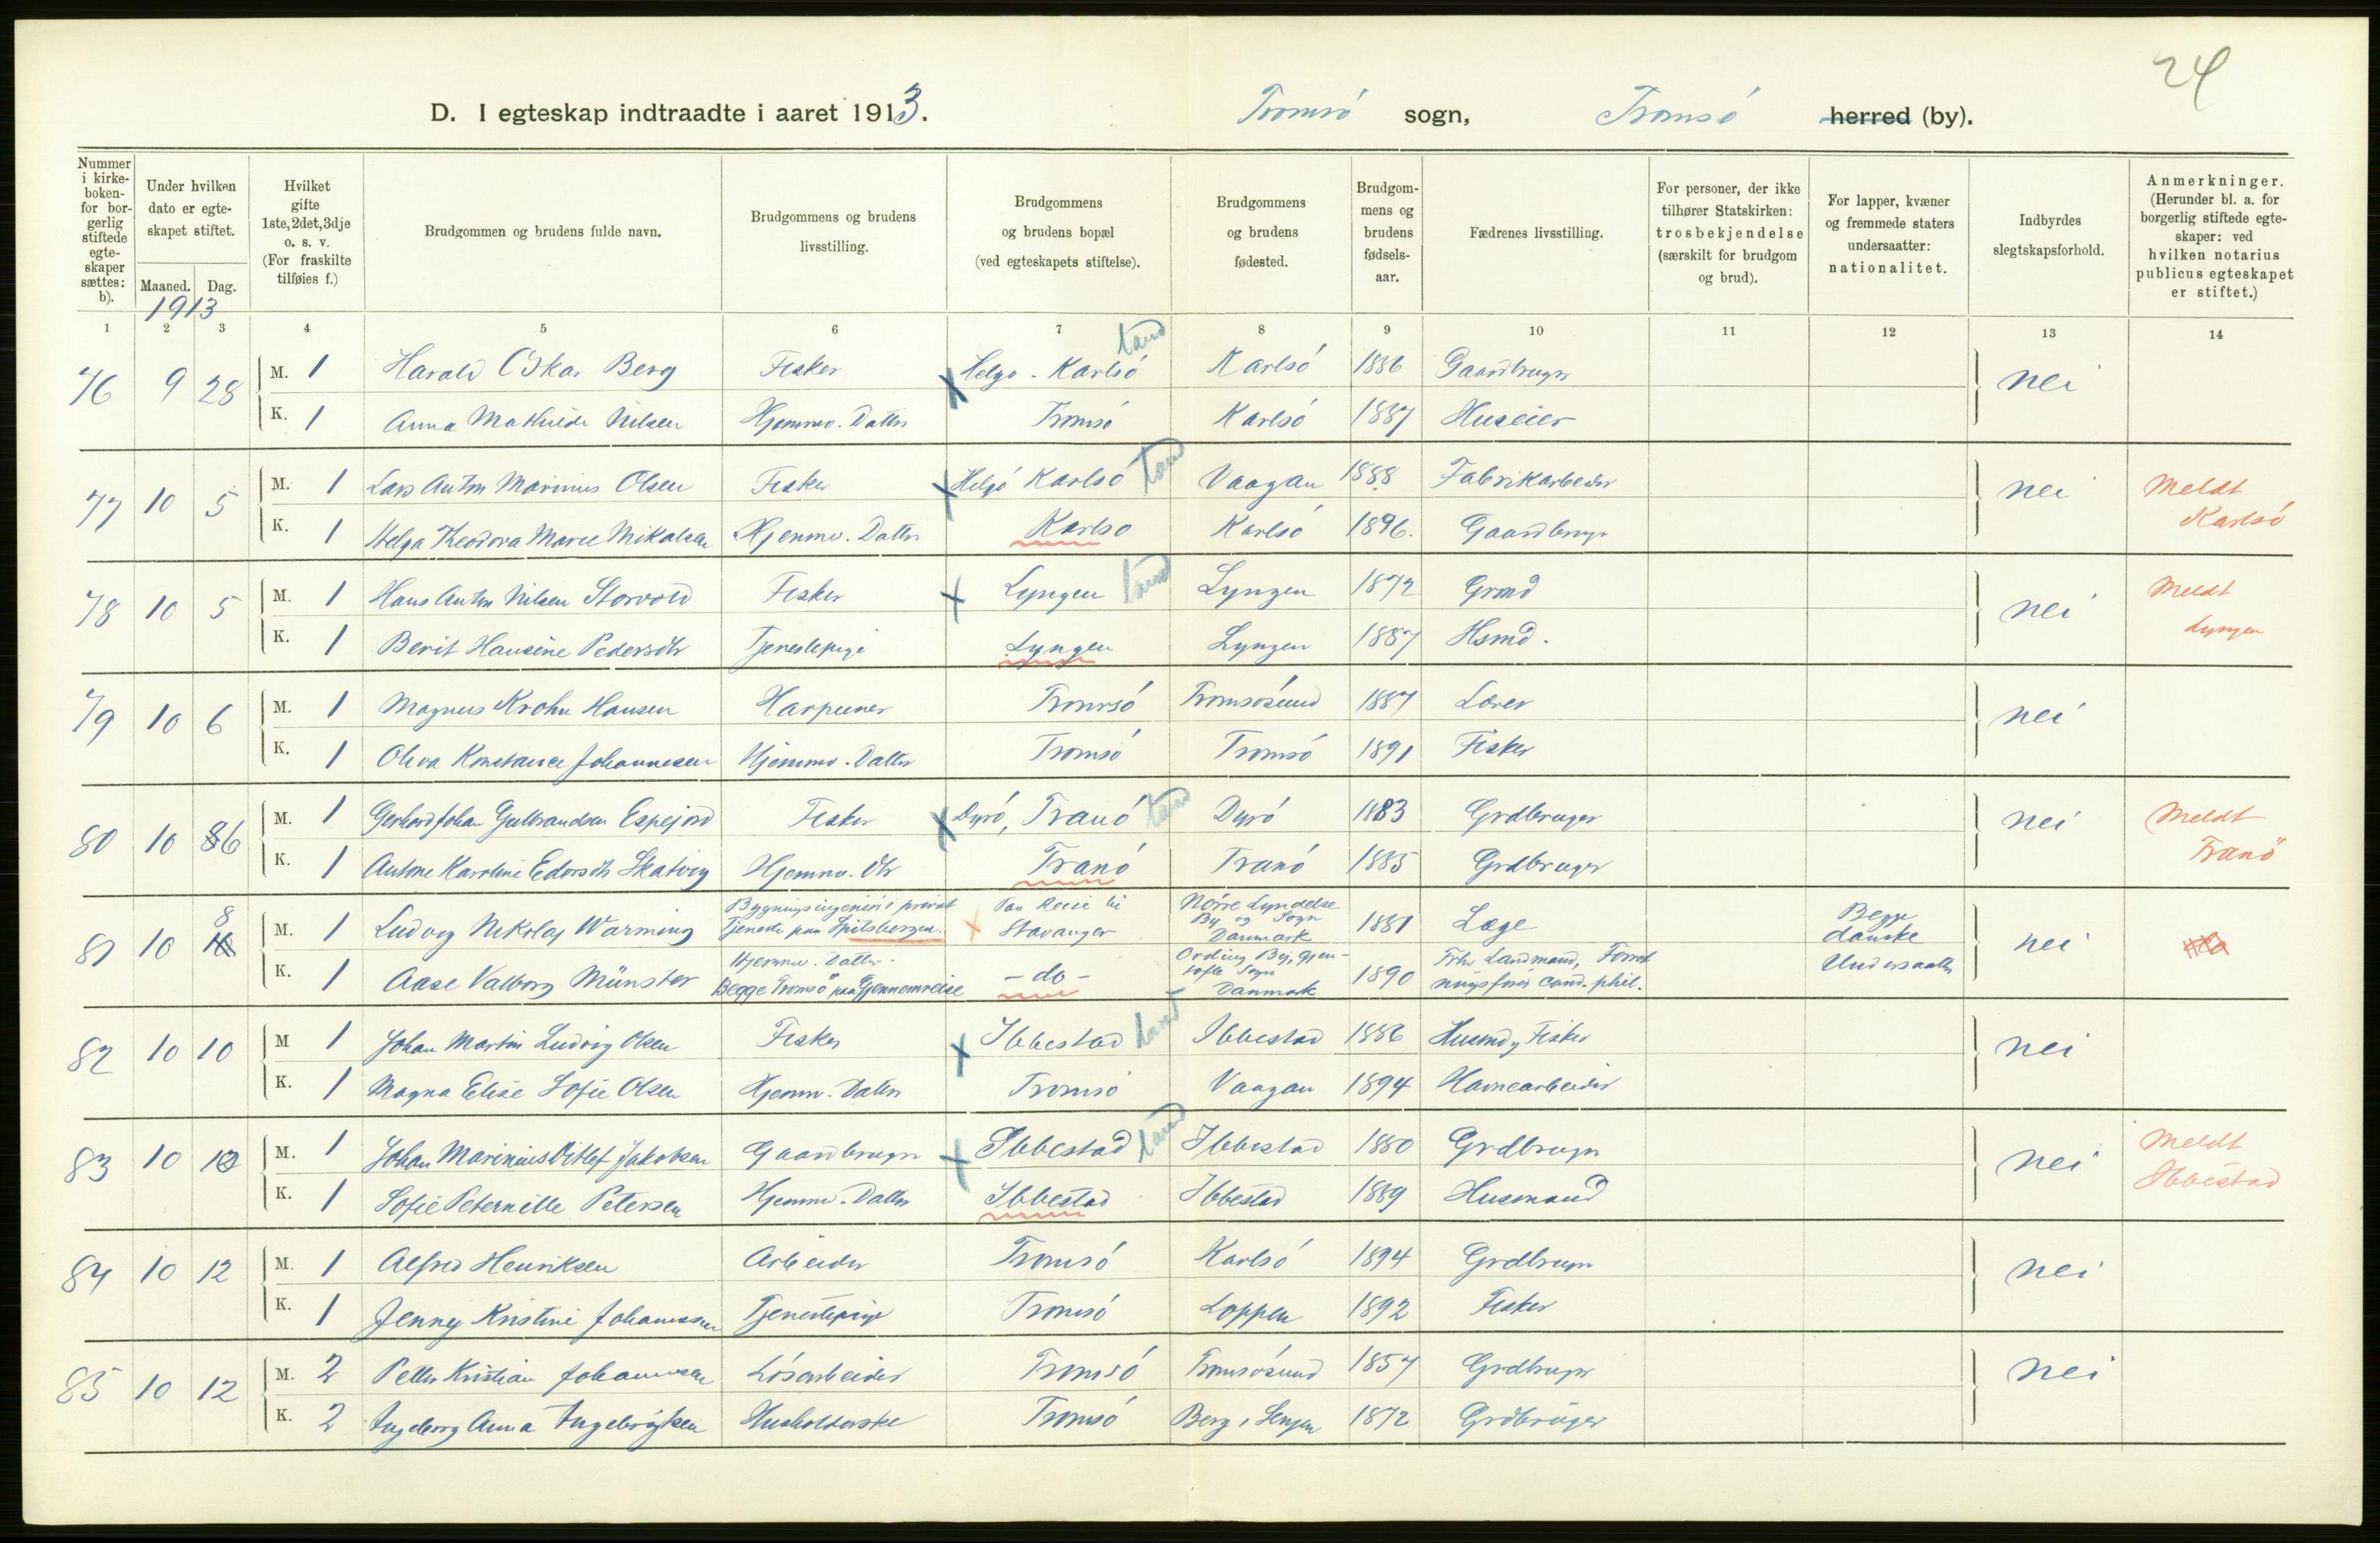 24
D. I egteskap indtraadte i aaret 1913. Tromsö sogn, Tromsö herred (by).
Nummer i kirkeboken- for borgerlig stiftede egteskaper sættes: b).
Under hvilken dato er egteskapet stiftet.
Maaned. Dag.
1913
Hvilket gifte 1ste, 2det, 3dje o. s. v. (For fraskilte tilføies f.)
Brudgommen og brudens fulde navn.
Brudgommens og brudens livsstilling.
Brudgommens og brudens bopæl (ved egteskapets stiftelse).
Brudgommens og brudens fødested.
Brudgommens og brudens fødselsaar.
Fædrenes livsstilling.
For personer, der ikke tilhører Statskirken: trosbekjendelse (særskilt for brudgom og brud).
For lapper, kvæner og fremmede staters undersaatter: nationalitet.
Indbyrdes slegtskapsforhold.
Anmerkninger. (Herunder bl. a. for borgerlig stiftede egteskaper: ved hvilken notarius publicus egteskapet er stiftet.)
1 2 3 4 5 6 7 8 9 10 11 12 13 14
76 9 28 M. 1 Harald Oskar Berg Fisker Helgö - Karlsö land Karlsö 1886 Gaardbruger nei
K. 1 Anna Mathilde Nilsen Hjemmev. Datter Tromsö Karlsö 1887 Huseier
77 10 5 M. 1 Lars Anton Marinius Olsen Fisker Helgö Karlsö land Vaagan 1888 Fabrikarbeider nei Meldt Karlsö
K. 1 Helga Theodora Marie Mikalsen Hjemmev. Datter Karlsö Karlsö 1896. Gaardbruger
78 10 5 M. 1 Hans Anton Nilsen Storvold Fisker Lyngen land Lyngen 1872 Grmd nei Meldt Lyngen
K. 1 Berit Hansine Pedersdtr Tjenestepige Lyngen Lyngen 1887 Hsmd.
79 10 6 M. 1 Magnus Krohn Hansen Harpuner Tromsö Tromsösund 1887 Lærer nei
K. 1 Oliva Konstance Johannesen Hjemmev. Datter Tromsö Tromsö 1891 Fisker
80 10 6 M. 1 Gerhard Johan Gulbrandsen Espejord Fisker Dyrö, Tranö land Dyrö 1883 Grdbruger nei Meldt Tranö
K. 1 Antone Karoline Edorsdtr Skatvig Hjemmev. Dtr Tranö Tranö 1885 Grdbruger
81 10 8 M. 1 Ludvig Nikolaj Warming Bygningsingeniör i privat Tjeneste paa Spitsbergen. Paa Reise til Stavanger Nörre Lyndelse By og Sogn Danmark 1881 Læge Begge danske Undersaatter nei
K. 1 Aase Valborg Münster Hjemmev. Datter. Begge Tromsö paa Gjennemreise - do - Ording By, Gjen- Sogn Danmark 1890 Fhv Landmand, Forret ningsförer cand. phil.
82 10 10 M 1 Johan Martin Ludvig Olsen Fisker Ibbestad land Ibbestad 1886 Husmd, Fisker nei
K. 1 Magna Elise Sofie Olsen Hjemmv. Datter Tromsö Vaagan 1894 Havnearbeider
83 10 10 M. 1 Johan Marinius Ditlef Jakobsen Gaardbruger Ibbestad land Ibbestad 1880 Grdbruger nei Meldt Ibbestad
K. 1 Sofie Peternille Petersen Hjemmev. Datter Ibbestad Ibbestad 1889 Husmand
84 10 12 M. 1 Alfred Henriksen Arbeider Tromsö Karlsö 1894 Grdbruger nei
K. 1 Jenny Kristine Johanessen Tjenestepige Tromsö Loppen 1892 Fisker
85 10 12 M. 2 Petter Kristian Johannesen Lösarbeider Tromsö Tromsösund 1857 Grdbruger nei
K. 2 Ingeborg Anna Ingebrigtsen Husholderske Tromsö Berg, Senjen 1872 Grdbruger